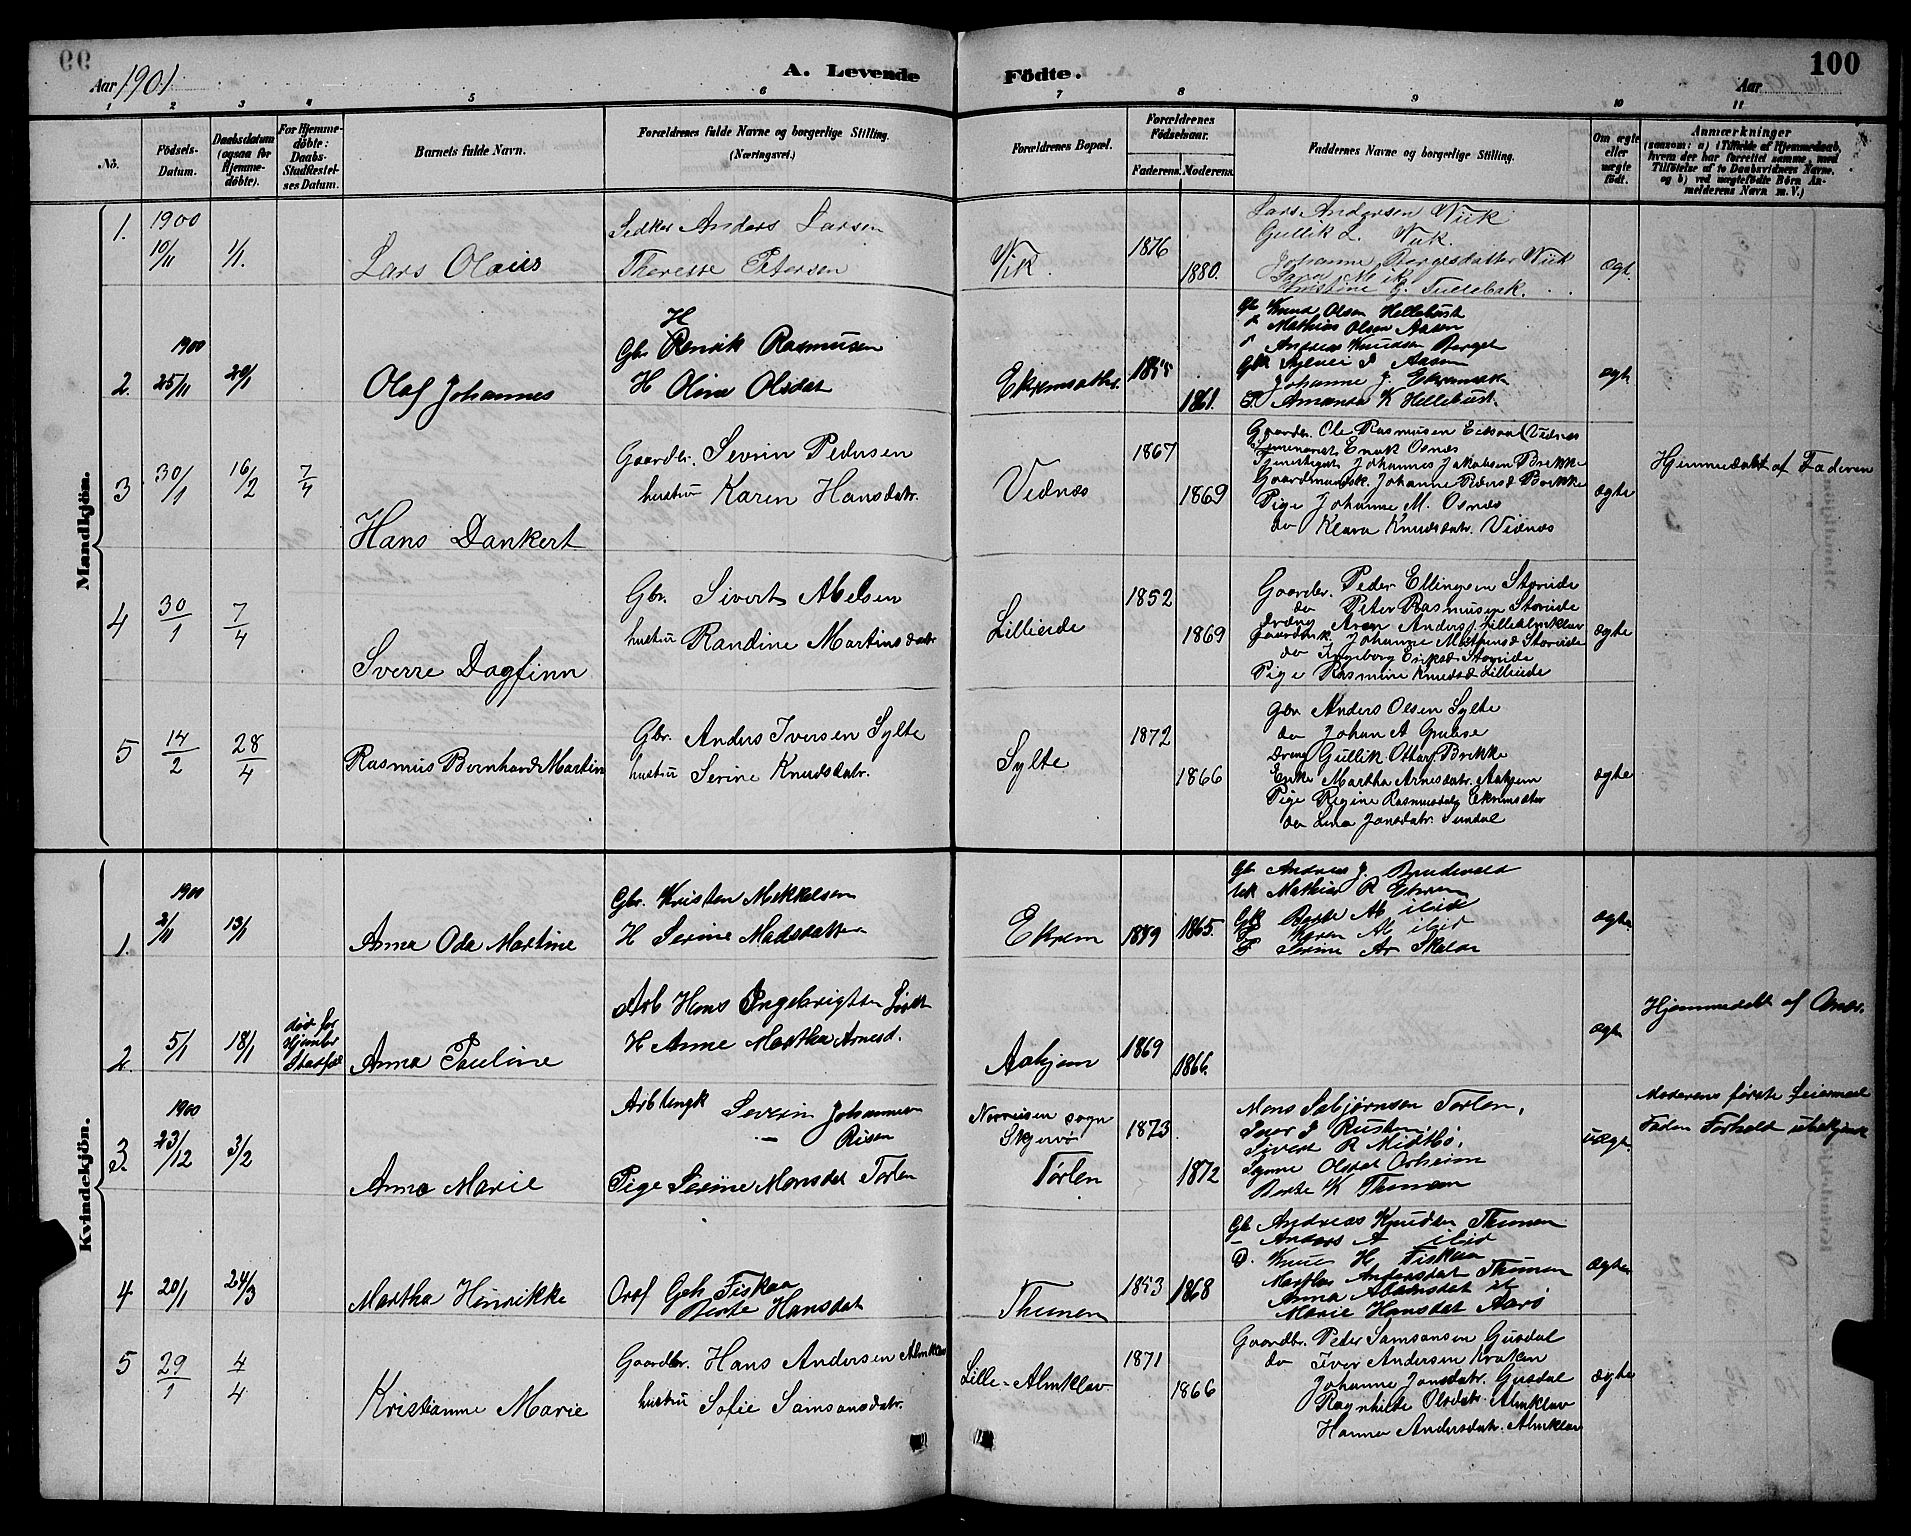 99
Aar 1901
A. Levende
Födte.
Aar
100
1 2 3 4 5 6 7 8 9 10 11
No.
Födsels-Datum.
Daabsdatum (ogsaa for Hjemme-döbte).
For Hjemme-döbte: Daabs-Stadfæstel-ses Datum.
Barnets fulde Navn.
Forældrenes fulde Navne og borgerlige Stilling. (Næringsvei.)
Forældrenes Bopæl.
Forældrenes Födselsaar.
Faderens. Moderens.
Faddernes Navne og borgerlige Stilling.
Om ægte eller uægte födt.
Anmærkninger
(saasom: a) i Tilfælde af Hjemmedaab, hvem der har forrettet samme, med Tilföielse af to Daabsvidners Navne. og b) ved uægtefödte Börn An-melderens Navn m. V.)
Mandkjön.
1. 1900
10/11 1/1.
Lars Olaus
Anders Larsen
Therese Petersen
Vik.
1876
1880.
Lars Andersen Wiik
Gullik L. Wiik.
Johanne Borgesdatter Wiik
ægt.
2. 1900
25/11 20/1
Olaf Johannes
H
Gbr Henrik Rasmusen
H Oline Olsdat
Ekremsæther
1855
1861.
Gb Knud Olsen Hellebust
Mathias Olsen Aasen
Andreas Knudsen Berget
Gbk Sylvei J Aasen
Johanne J. Ekremsæt
P. Amanda K Hellebust
ægte
3 30/1 16/2 7/4
Hans Dankert
Gaardbr. Sevrin Pedersen
hustru Karen Hansdatr.
Vednæs
1867
1869
Gaardbr. Ole Rasmusen Eidsaa (Vidnæs
Enok Osnes
Johannes Jakobsen Brekke
Gaardmandsk. Johanne Pedersd Brekke
Pige Johanne M. Osnæs
do Klara Knudsdatr. Vidnæs
ægte
Hjemmedøbt af Faderen
4 30/1 7/4
Sverre Dagfinn
Gbr. Sivert Abelsen
hustru Randine Martinsdatr
Lilleeide
1852
1869
Gaardbr. Peder Ellingsen Storeide
do Peter Rasmusen Storeide
Dreng Aron Anders. Lillealmklov
Gaardmk Johanne Mathiasd Storeide
do Ingeborg Eriksd Storeide
Pige Rasmine Knudsd Lilleeide
ægte
5 14/2 28/4
Rasmus Bernhard Martin
Gbr. Anders Iversen Sylte
hustru Serine Knudsdatr.
Sylte
1872
1866
Gbr Anders Olsen Sylte
do Johan A Grubse
Dreng Gullik Ottar Brekke
Enke Martha Arnesdatr. Aahjem
Pige Regine Rasmusdatr Ekremsæter
do Lina Jonsdatr. Sundal
ægte
Kvindekjön.
1. 1900
2/11 13/1
Anna Oda Martine
Gbr. Kristen Mekkelsen
H Serine Madsdatter
Ekrem
1859
1865.
Gb Andreas J. Brudevold
Mathias R Ekrem
Gk Berte M ibid
P Karen M ibid
P Serine Ar Skalar
ægte
2. 5/1 18/1
død før
Hjemdb
Stadfæst
Anna Pauline
Arb Hans Ingebrigtsen
H Anne Martha Arnesd.
Aahjem
1869
1866.
ægte
Hjemmedøbt af
3. 1900
23/12 3/2
Anna Marie
Severin Johannesen
Reisen
Pige Serine Monsdat Torlen
sogn
Skjervø
Tørlen
1873
1872
Mons Sæbjørnsen Torlen,
Iver J Rusten,
Sivert R Midtbø,
Synne Olsdat Aaheim
Berte K Thunem
uægte
Moderens første Leiermaal
Faders Forhold ubekjendt
4 20/1 24/3
Martha Henrikke
Fiskaa
Berte Hansdat
Thunem
1853
1868
Gb Andreas Knudsen Thunem
– Anders A ibid
D. Knud H Fiskaa
Martha Andersdat Thunem
Anna Adamsdat ib
Marie Hansdat Aarø
ægte
5 29/1 4/4
Kristianne Marie
Gaardbr. Hans Andersen Almklov
hustru Sofie Samsonsdatr.
Lille-Almklov
1871
1866
Gaardbr. Peder Samsonsen Gusdal
do Iver Andersen Kroken
Johanne Jonsdatr. Gusdal
Ragnhilde Olsdatr. Almklov
Hanna Andersdatr. Almklov
ægte